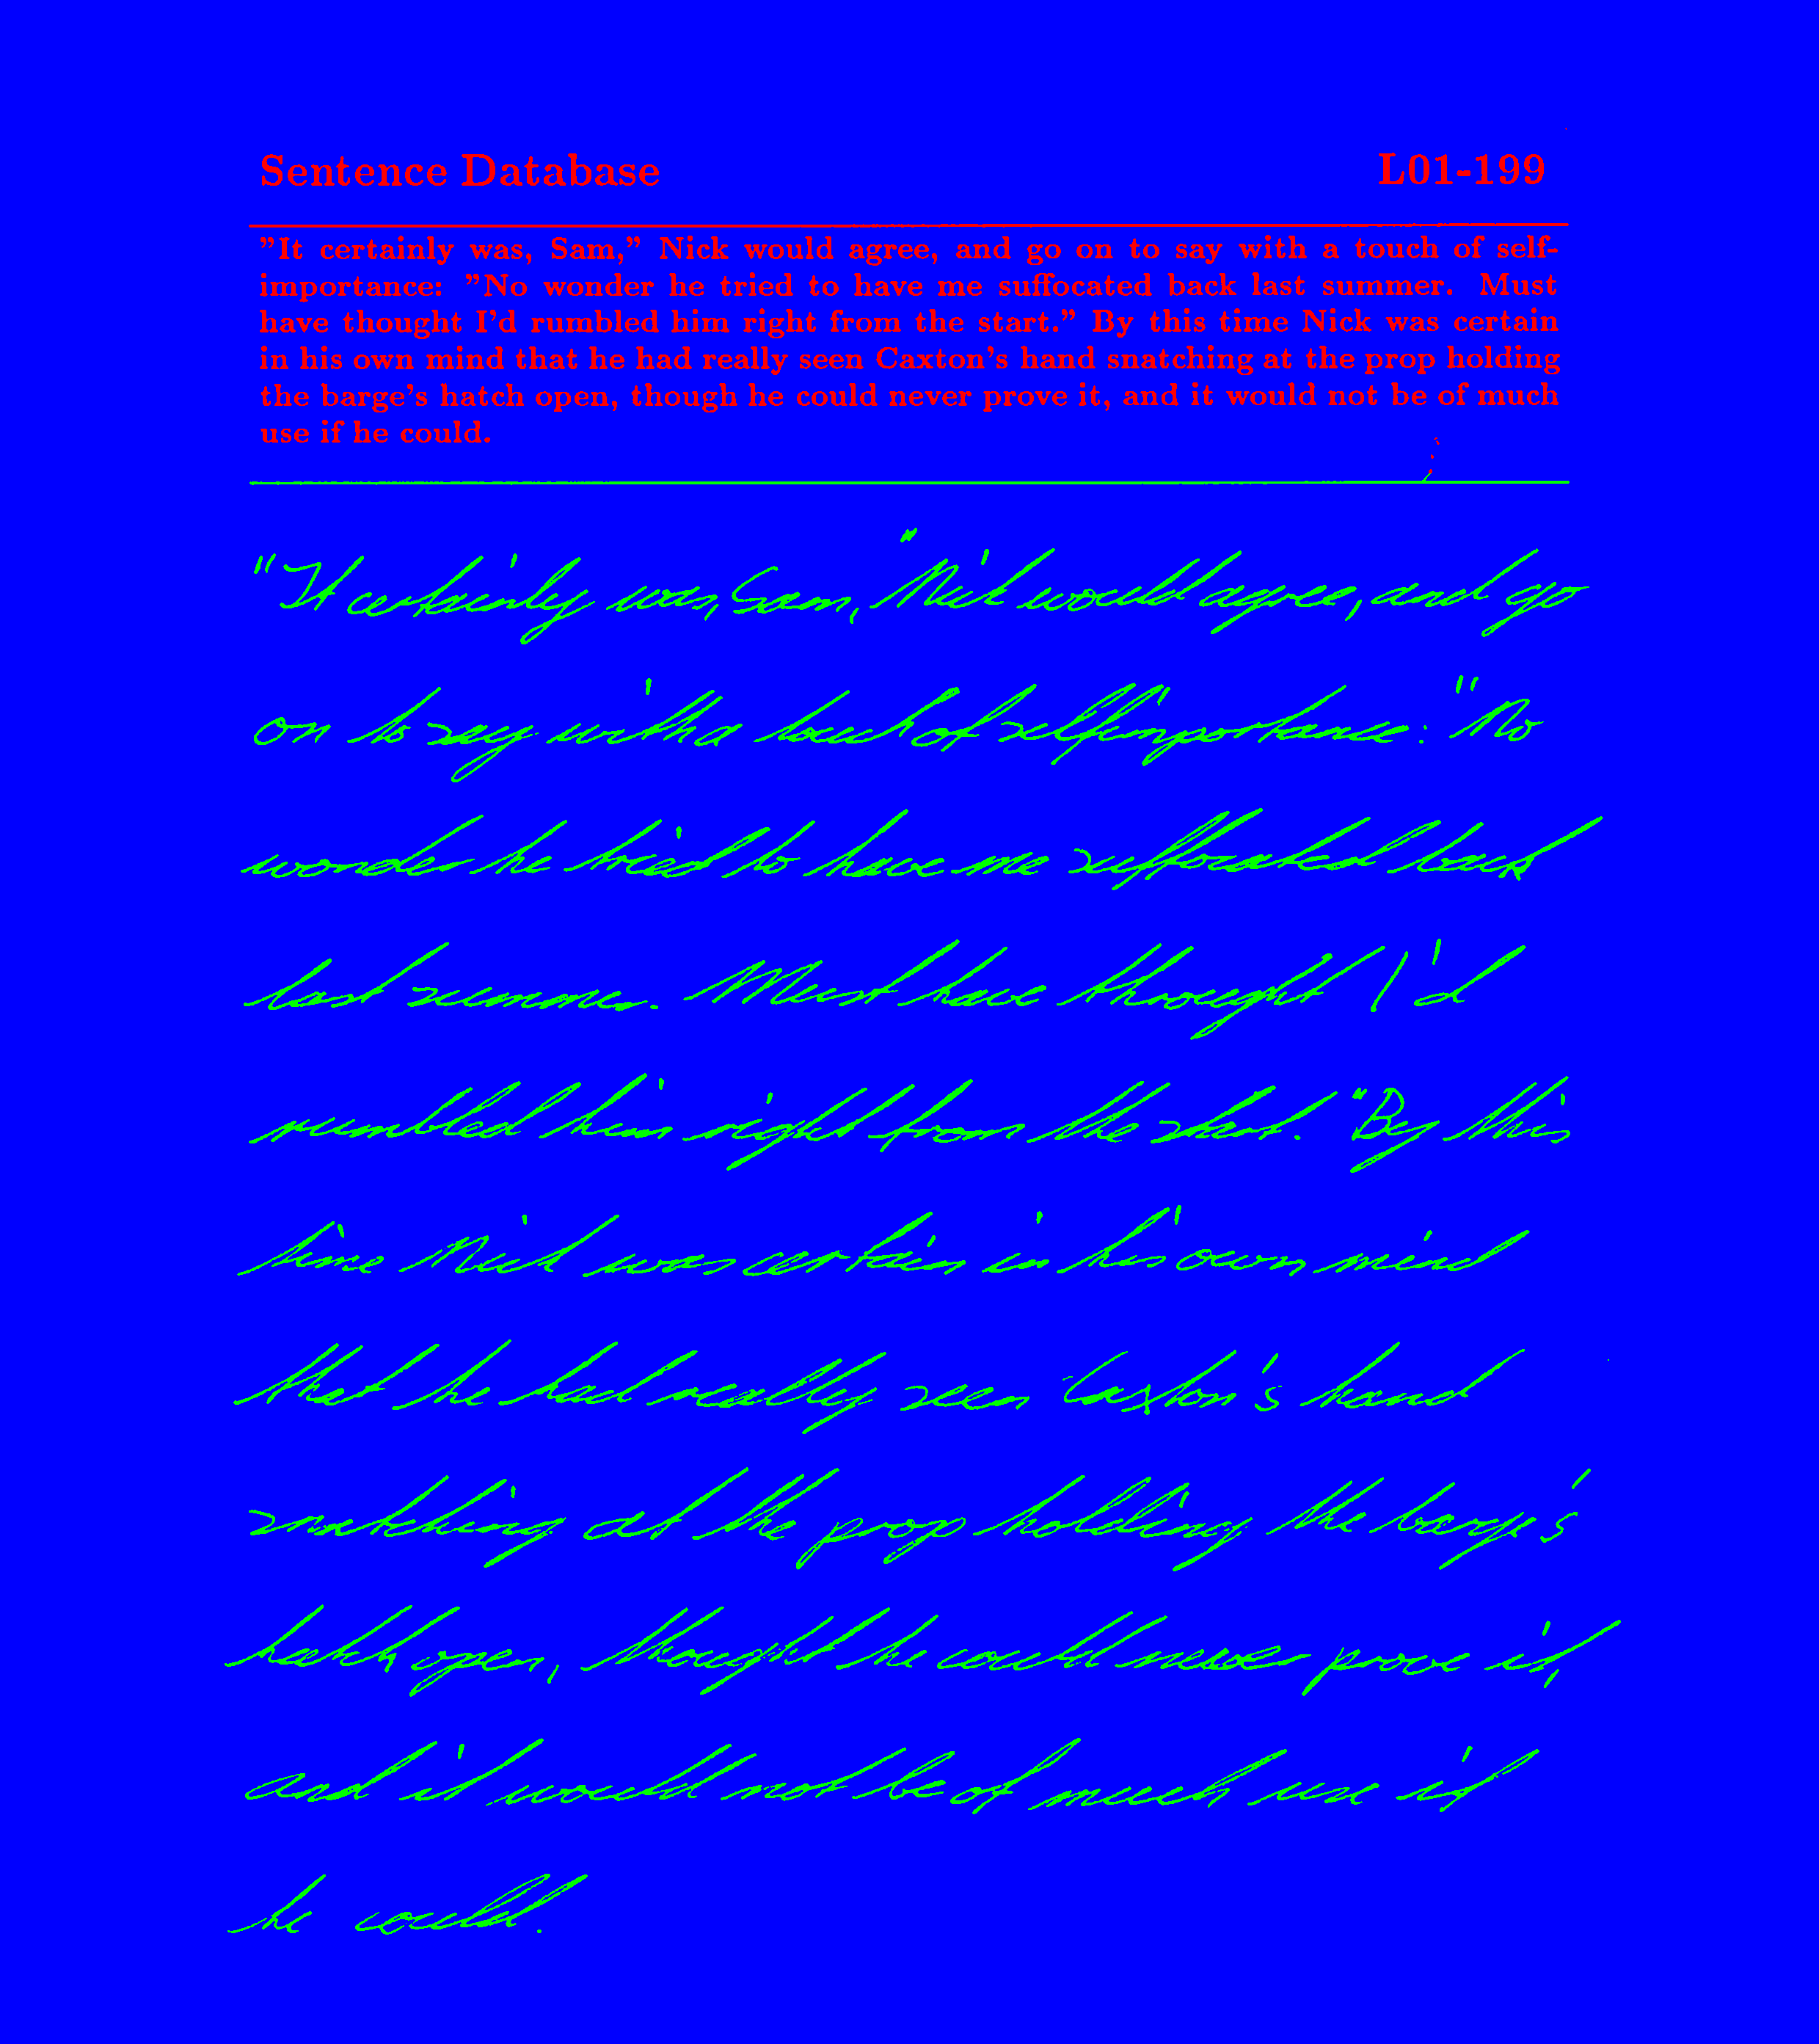 Sentence Database L01-199
"It certainly was, Sam," Nick would agree, and go on to say with a touch of self-
importance: "No wonder he tried to have me suffocated back last summer. Must
have thought I'd rumbled him right from the start." By this time Nick was certain
in his own mind that he had really seen Caxton's hand snatching at the prop holding
the barge's hatch open, though he could never prove it, and it would not be of much
use if he could.
"It certainly was, Sam," Nick would agree, and go
on to say with a touch of selfimportance: "No
wonder he tried to have me suffocated back
last summer. Must have thought I'd
rumbled him right from the start. "By this
time Nick was certain in his own mind
that he had really seen Caxton's hand
snatching at the prop holding the barge's
hatch open, thought he could never prove it,
and it would not be of much use if
he could.